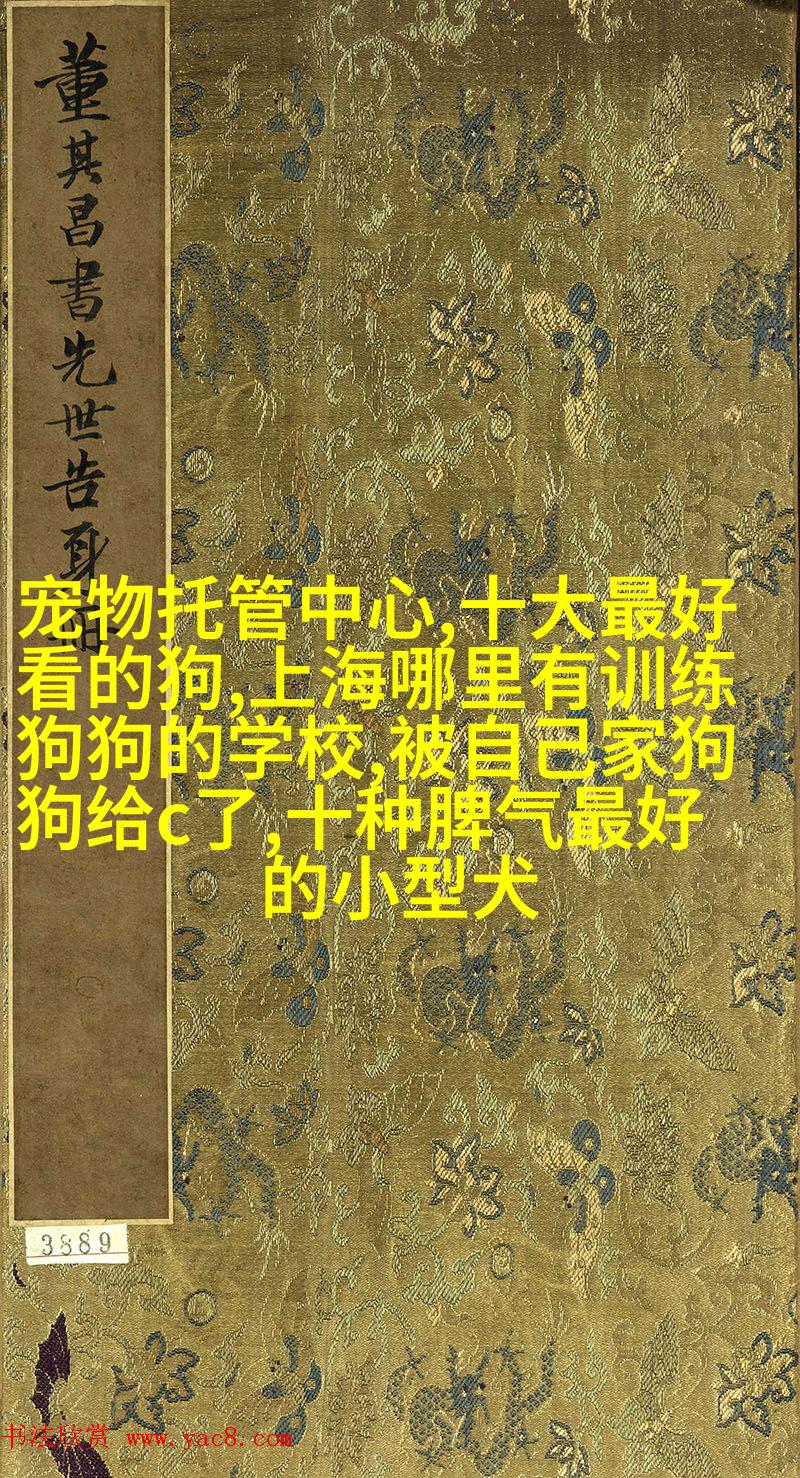 董其昌書先世告身冊
宠物托管中心,十大最好
看的狗,上海哪里有训练
狗狗的学校,被自己家狗
狗给c了,十种脾气最好
的小型犬
3889
书法欣赏 www.yac8.com